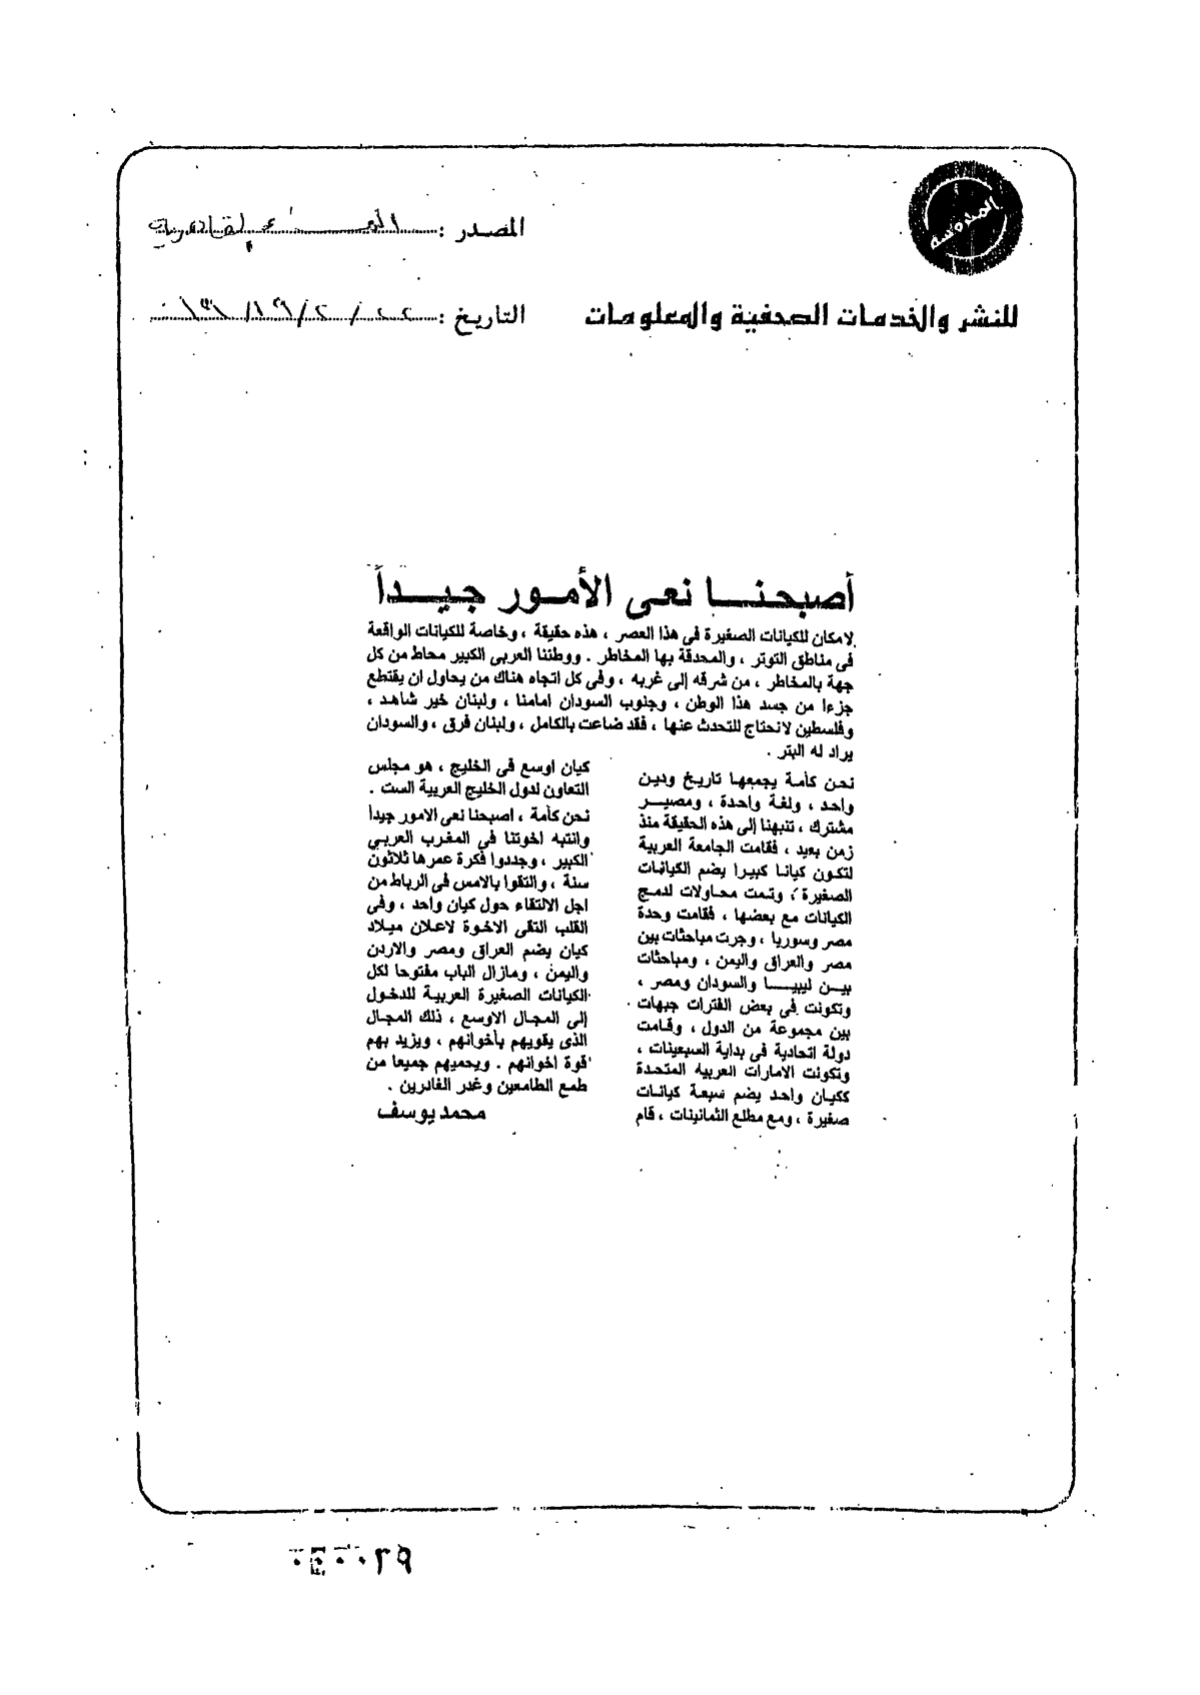 المصدر :
للنشر والخدمات الصحفية والمعلومات
التاريخ :
أصبحنا نعى الأمور جيداً
لامكان للكيانات الصغيرة فى هذا العصر ، هذه حقيقة ، وخاصة للكيانات الواقعة
فى مناطق التوتر ، والمحدقة بها المخاطر . ووطننا العربى الكبير محاط من كل
جهة بالمخاطر ، من شرقه إلى غربه ، وفى كل اتجاه هناك من يحاول ان يقتطع
جزءا من جسد هذا الوطن ، وجنوب السودان امامنا ، ولبنان خير شاهد ،
وفلسطين لانحتاج للتحدث عنها ، فقد ضاعت بالكامل ، ولبنان فرق ، والسودان
يراد له البتر .
نحن كأمة يجمعها تاريخ ودين
واحد ، ولغة واحدة ، ومصير
مشترك ، تنبهنا إلى هذه الحقيقة منذ
زمن بعيد ، فقامت الجامعة العربية
لتكون كيانا كبيرا يضم الكيانات
الصغيرة ، وتمت محاولات لدمج
الكيانات مع بعضها ، فقامت وحدة
مصر وسوريا ، وجرت مباحثات بين
مصر والعراق واليمن ، ومباحثات
بين ليبيا والسودان ومصر ،
وتكونت فى بعض الفترات جبهات
بين مجموعة من الدول ، وقامت
دولة اتحادية فى بداية السبعينات ،
وتكونت الامارات العربيه المتحدة
ككيان واحد يضم سبعة كيانات
صغيرة ، ومع مطلع الثمانينات ، قام
كيان اوسع فى الخليج ، هو مجلس
التعاون لدول الخليج العربية الست .
نحن كأمة ، اصبحنا نعى الامور جيداً
وانتبه اخوتنا فى المغرب العربي
الكبير ، وجددوا فكرة عمرها ثلاثون
سنة ، والتقوا بالامس فى الرباط من
اجل الالتقاء حول كيان واحد ، وفى
القلب التقى الاخوة لاعلان ميلاد
كيان يضم العراق ومصر والاردن
واليمن ، ومازال الباب مفتوحا لكل
الكيانات الصغيرة العربية للدخول
إلى المجال الاوسع ، ذلك المجال
الذى يقويهم بأخوانهم ، ويزيد بهم
قوة اخوانهم . ويحميهم جميعا من
طمع الطامعين وغدر الغادرين .
محمد يوسف